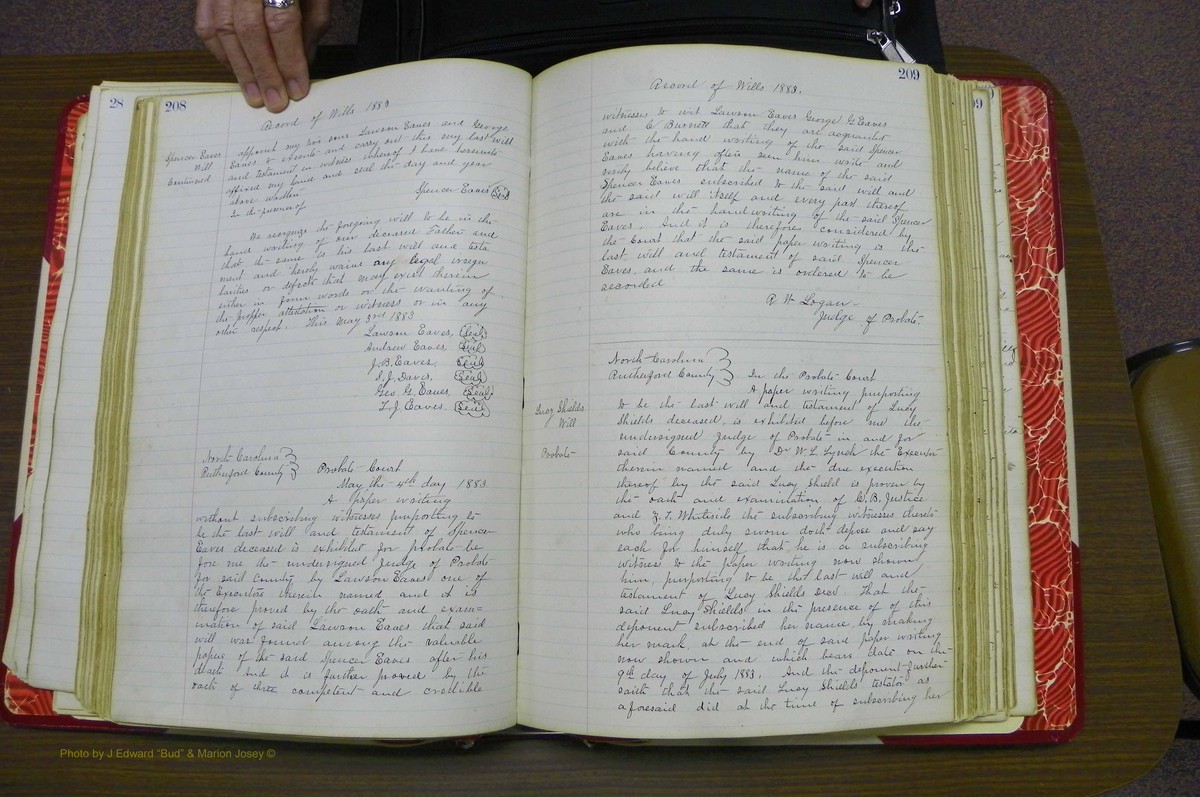 28
208
Record of Wills 1883
Spencer Eaves
Will
Continued
appoint my two sons Lawson Eaves and George
Eaves to execute and carry out this my last will
and testament in witness whereof I have hereunto
affixed my hand and seal the day and year
above written
In the presence of
Spencer Eaves Seal
We recognize the forgoing will to be in the
hand writing of our deceased Father and
that the same is his last will and testa
ment and hereby waive any legal irregu
larities or defects that may exist therein
either in form words or the wanting of
the propper attestation or witness or in any
other respect. This May 3rd 1883
Lawson Eaves Seal
Andrew Eaves Seal
J. B. Eaves. Seal
S. J. Davis. Seal
Geo G. Eaves Seal
T. J. Eaves. Seal
North Carolina
Rutherford County
Probate Court
May the 4th day 1883
A paper writing
without subscribing witnesses purporting to
be the last will and testament of Spencer
Eaves deceased is exhibited for probate be
fore me the undersigned Judge of Probate
for said county by Lawson Eaves one of
the Executors therein named and it is
therefore proved by the oath and exam=
ination of said Lawson Eaves that said
will was found among the valuable
papers of the said Spencer Eaves after his
death And it is further proved by the
oath of three competent and credible
209
Record of Wills 1883.
witnesses to wit Lawson Eaves George G Eaves
and C Burnett that they are acquainted
with the hand writing of the said Spencer
Eaves having often seen him write and
verily believe that the name of the said
Spencer Eaves subscribed to the said will and
the said will itself and every part thereof
are in the handwriting of the said Spencer
Eaves. And it is therefore considered by
the Court that the said paper writing is the
last will and testament of said Spencer
Eaves and the same is ordered to be
recorded
R W Logan
Judge of Probate.
North Carolina
Rutherford County
In the Probate Court
Lucy Shields
Will
Probate
A paper writing purporting
to be the last will and testament of Lucy
Shields deceased, is exhibited before me the
undersigned Judge of Probate in and for
said County by Dr W L Lynch the Executor
therein named and the due execution
thereof by the said Lucy Shield is proven by
the oath and examination of C. B. Justice
and Z. T. Whiteside the subscribing witnesses thereto
who being duly sworn doth depose and say
each for himself that he is a subscribing
witness to the paper writing now shown
him, purporting to be the last will and
testament of Lucy Shields decd. That the
said Lucy Shields in the presence of of this
deponent subscribed her name by making
her mark, at the end of said paper writing
now shown and which bears date on the
9th day of July 1883. And the deponent further
saith that the said Lucy Shields testator as
aforesaid did at the time of subscribing her
Photo by J Edward "Bud" & Marion Josey ©